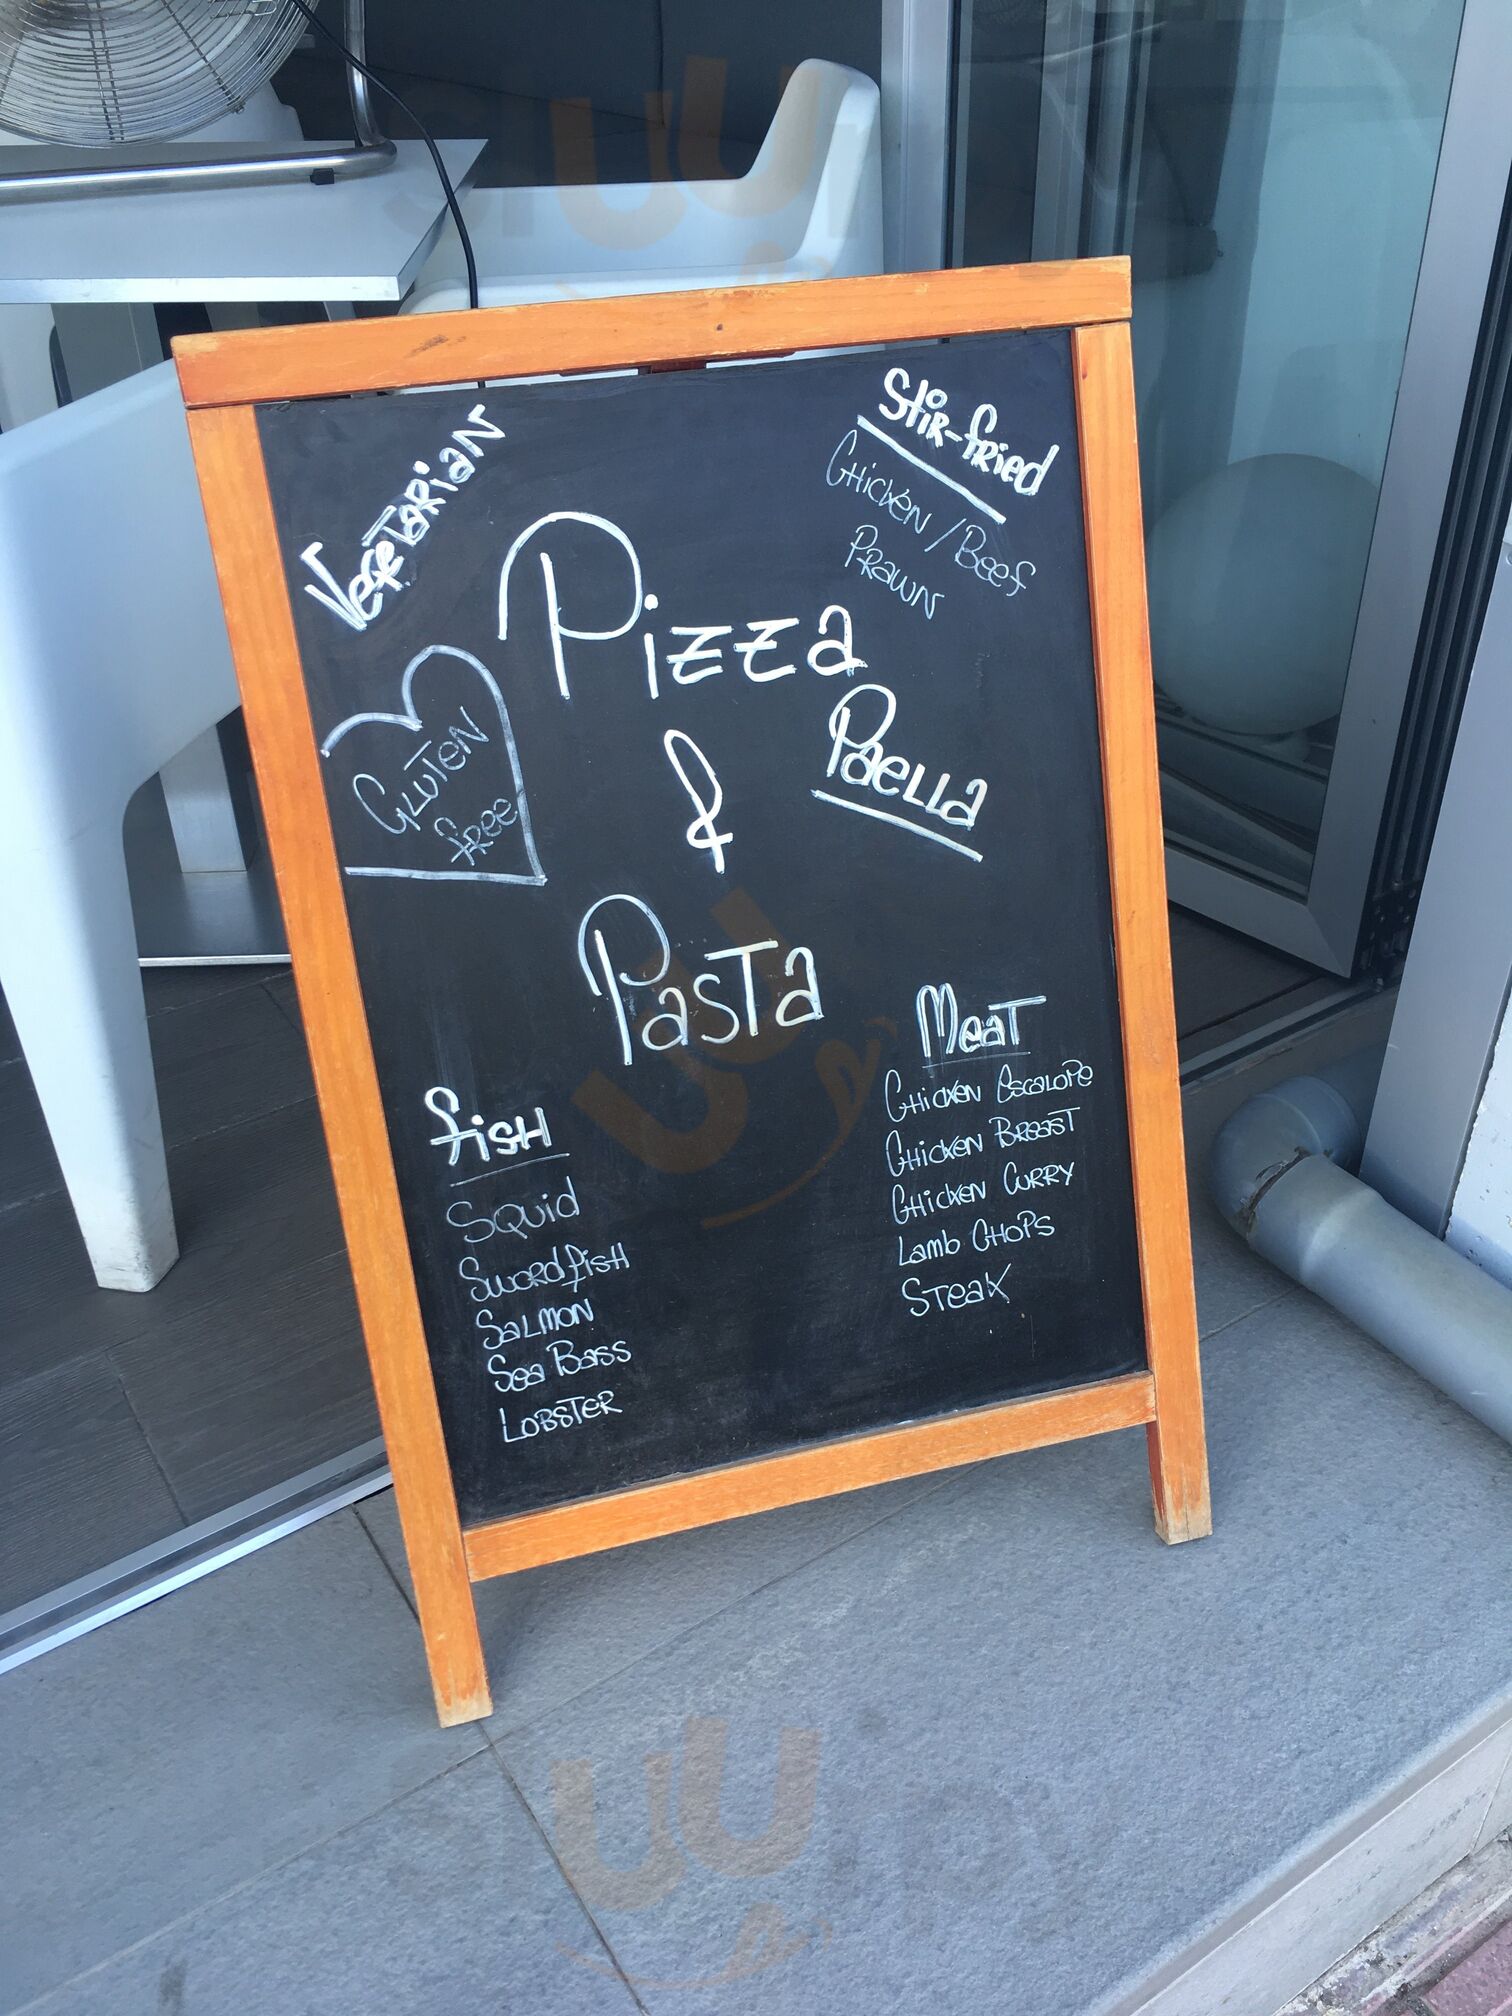 Vegetarian
Stir-fried
Chicken / Beef
Prawn
Pizza
&
Pasta
Gluten
free
Paella
Fish
Squid
Swordfish
Salmon
Sea Bass
Lobster
Meat
Chicken Escalope
Chicken Breast
Chicken Curry
Lamb Chops
Steak